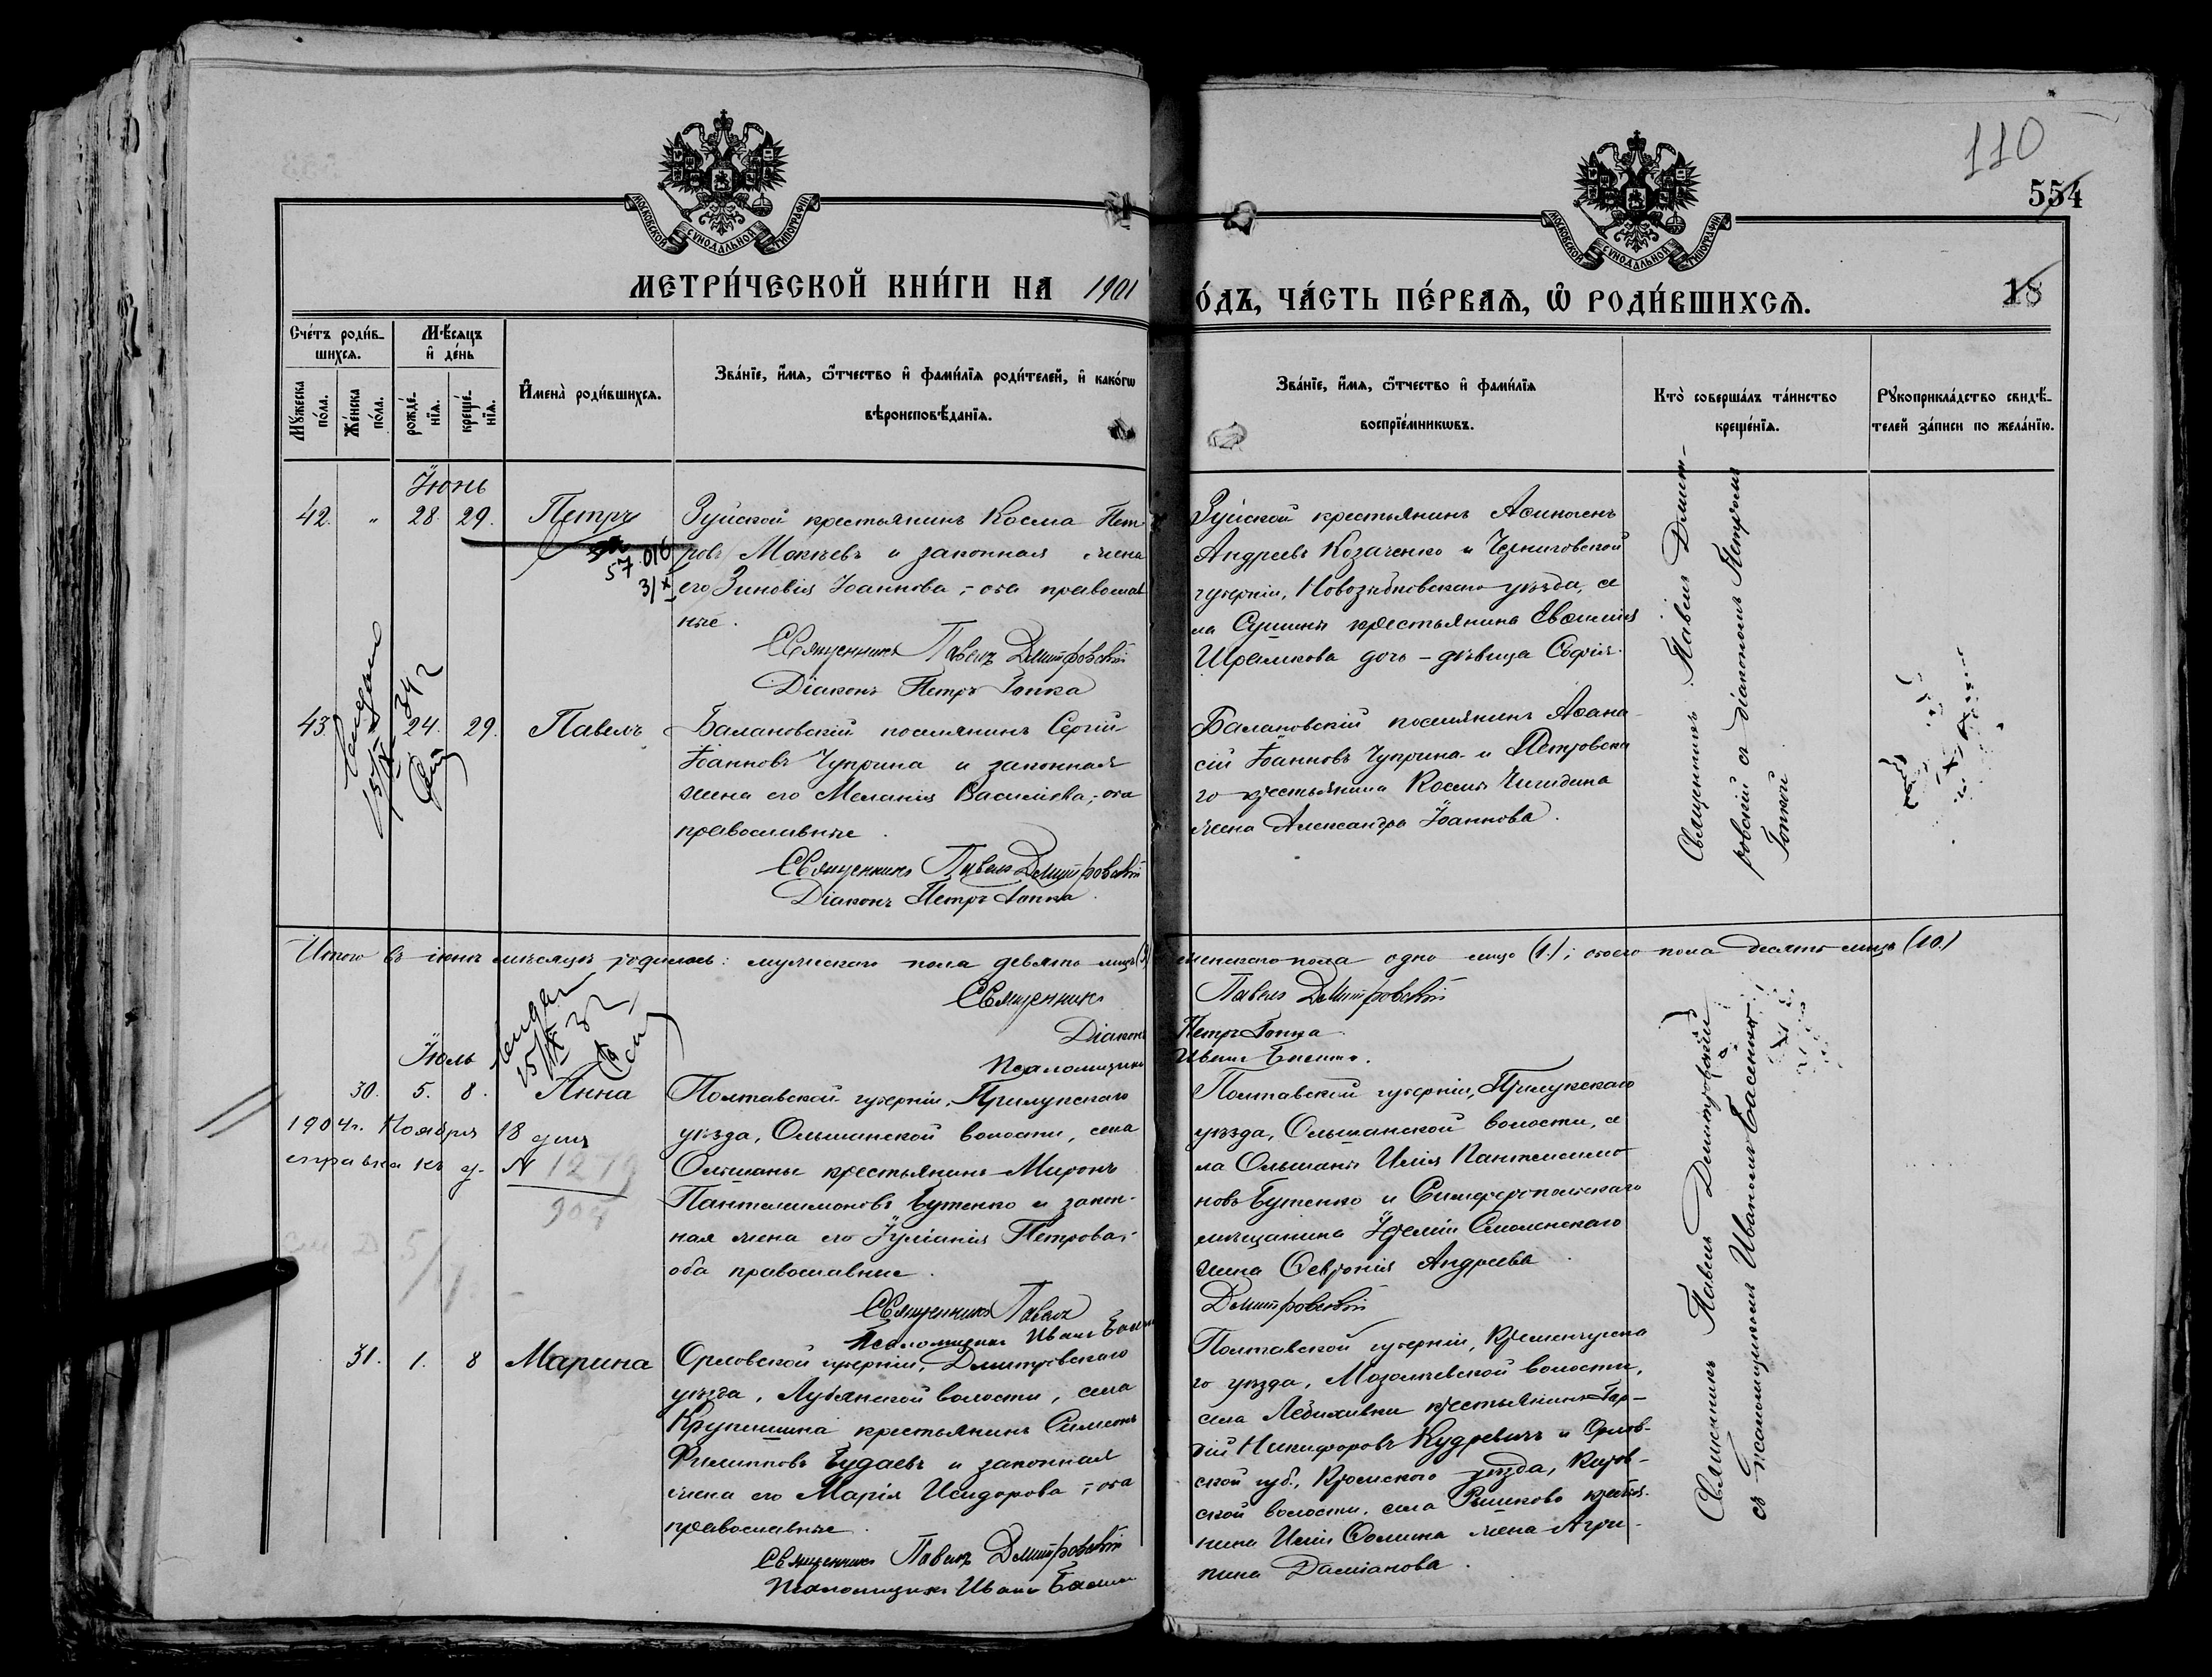 110
554
МОСКОВСКОЙ СѴНОДАЛЬНОЙ ТИПОГРАФИИ
МОСКОВСКОЙ СѴНОДАЛЬНОЙ ТИПОГРАФИИ
МЕТРИ́ЧЕСКОЙ КНИ́ГИ НА 1901
О́ДЪ, ЧА́СТЬ ПЕ́РВАѦ, Ѿ РОДИ́ВШИХСѦ.
18
Сче́тъ роди́в-
шихсѧ.
Мѣ́сѧцъ
и҆ де́нь
Мꙋ́жеска
по́ла.
Же́нска
по́ла.
рожде́-
нїѧ.
креще́-
нїѧ.
И҆мена̀ роди́вшихсѧ.
Зва́нїе, и҆́мѧ, ѻ҆́тчество и҆ фами́лїѧ роди́телей, и҆ како́гѡ
вѣроисповѣ́данїѧ.
Зва́нїе, и҆́мѧ, ѻ҆́тчество и҆ фами́лїѧ
воспрїе́мникѡвъ.
Кто̀ соверша́лъ та́инство
креще́нїѧ.
Рꙋкоприкла́дство свидѣ́-
телей за́писи по жела́нїю.
Іюнь
42. " 28. 29. Петръ
Зуйской крестьянинъ Косма Пет
ровъ Мокѣевъ и законная жена
его Зиновія Іоаннова, - оба православ
ные.
Священникъ Павелъ Дмитровскій
Діаконъ Петръ Гопка
Зуйской крестьянинъ
Андреевъ Козаченко и Черниговской
губерніи, Новозыбковскаго уѣзда, се
ла крестьянина
дочь - дѣвица Софія.
Священникъ Павелъ Дмит-
ровскій съ діакономъ Петромъ
Гопкой
43. 24. 29. Павелъ
Балановскій поселянинъ Сергій
Іоанновъ Чуприна и законная
жена его Меланія Василіева, - оба
православные.
Священникъ Павелъ Дмитровскій
Діаконъ Петръ Гопка.
Балановскій поселянинъ Аѳана
сій Іоанновъ Чуприна и Петровска
го крестьянина Космы
жена Александра Іоаннова.
Итого въ іюнѣ мѣсяцѣ родилось: мужескаго пола девять лицъ (9) женскаго пола одно лицо (1.); обоего пола десять лицъ (10.)
Священникъ Павелъ Дмитровскій
Діаконъ Петръ Гопка
Псаломщикъ Иванъ
Іюль
30. 5. 8. Анна
1904г. Ноября 18 дня
справка къ д. № 1279
904
Полтавской губерніи, Прилукскаго
уѣзда, Ольшанской волости, села
Ольшаны крестьянинъ Миронъ
Пантелимоновъ Бутенко и закон-
ная жена его Іуліанія Петрова;
оба православные.
Священникъ Павелъ
Дмитровскій
Псаломщикъ Иванъ
Полтавской губерніи, Прилукскаго
уѣзда, Ольшанской волости, се
ла Ольшаны Илія Пантелимо
новъ Бутенко и Симферопольскаго
мѣщанина Смоленскаго
жена Ѳеѵронія Андреева.
Священникъ Павелъ Дмитровскій
съ псаломщикомъ Иваномъ
31. 1. 8 Марина
Орловской губерніи, Дмитровскаго
уѣзда, Лубянской волости, села
Крупышина крестьянинъ Симеонъ
Филипповъ Будаевъ и законная
жена его Марія Исидорова, - оба
православные.
Священникъ Павелъ Дмитровскій
Псаломщикъ Иванъ
Полтавской губерніи, Кременчугска
го уѣзда, волости,
села крестьянинъ Гор-
дій Никифоровъ Кудревичъ и Орлов-
ской губ., Кромскаго уѣзда,
ской волости, села Рышково крестья-
нина Иліи Ѳомина жена Агри-
пина Даміанова.